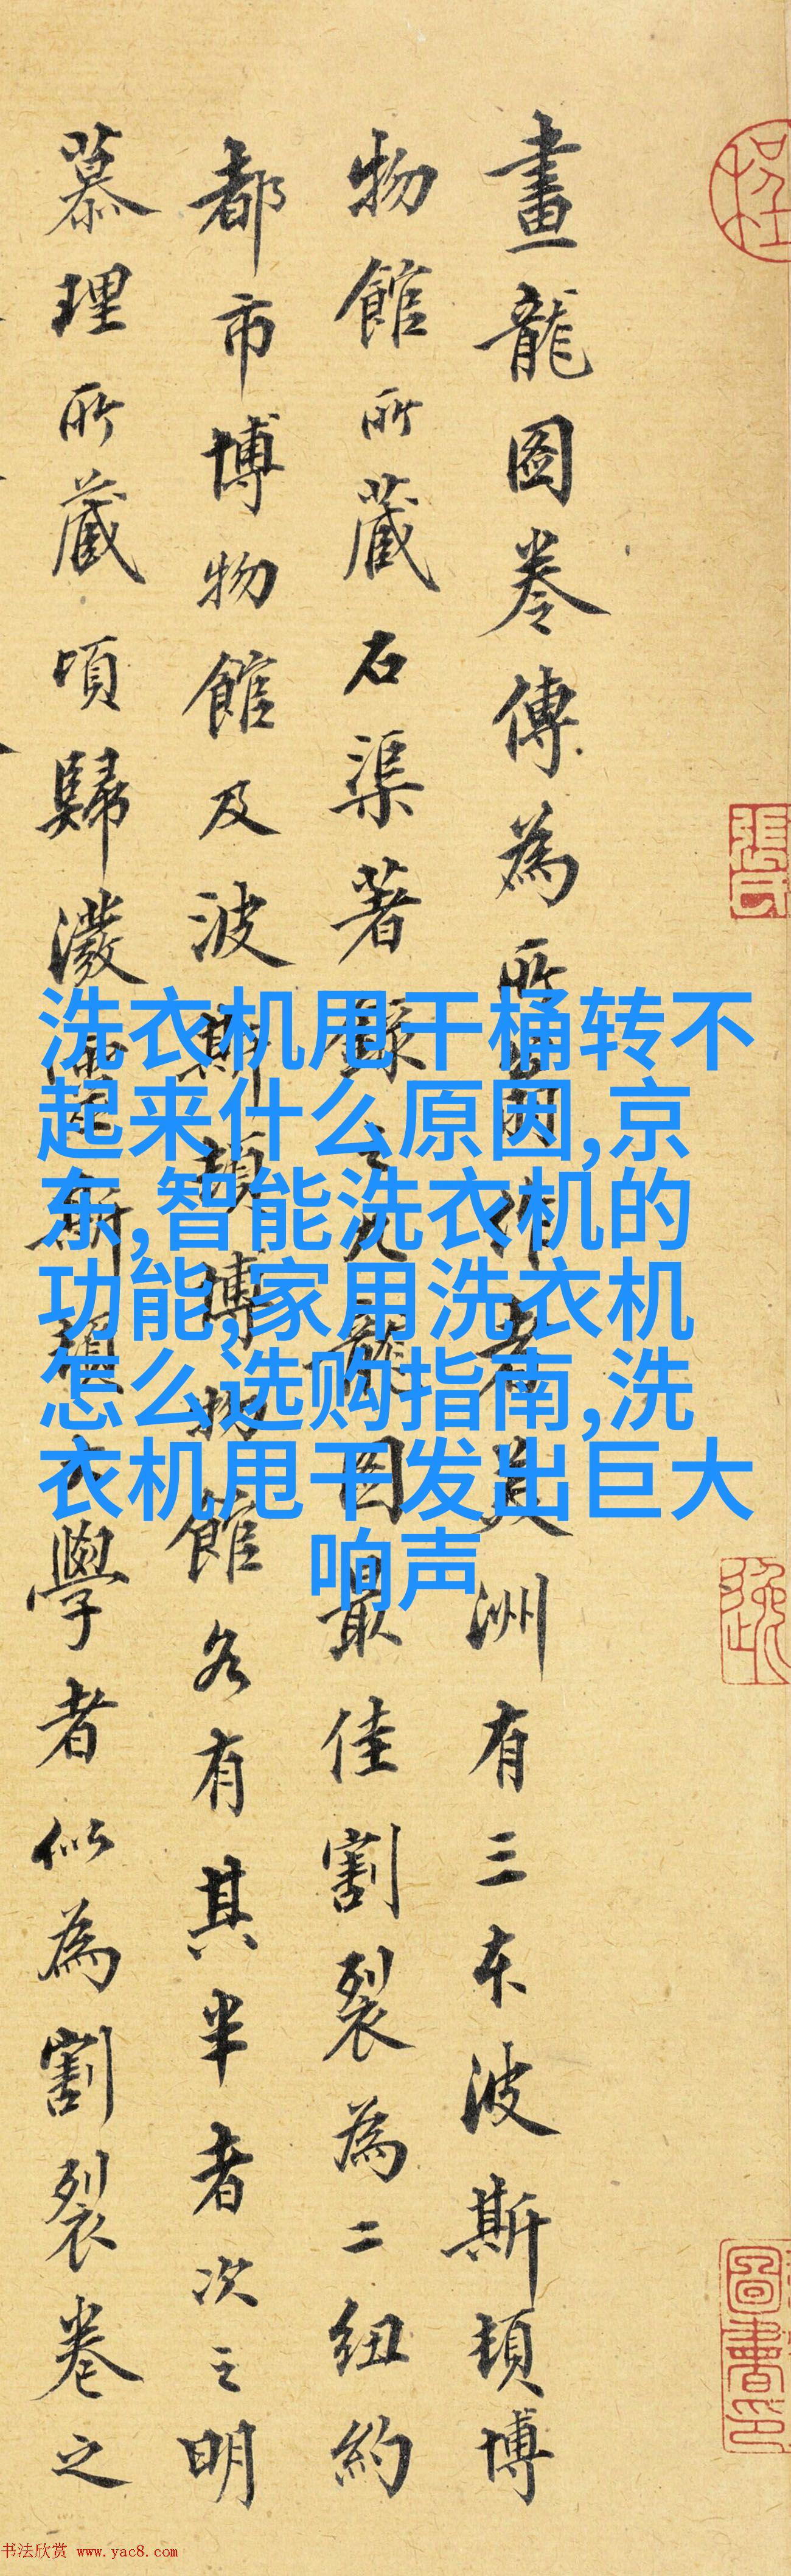 畫龍图卷傳為所作者美洲有三本波斯頓博
物館所藏石渠著錄之九龍图最佳割裂為二紐約
都市博物館及波斯頓博物館各有其半者次之明
慕理所藏頃歸潑斯頓大學者似為割裂卷之
洗衣机甩干桶转不
起来什么原因,京
东,智能洗衣机的
功能,家用洗衣机
怎么选购指南,洗
衣机甩干发出巨大
响声
張氏
圖書印
书法欣赏 www.yac8.com